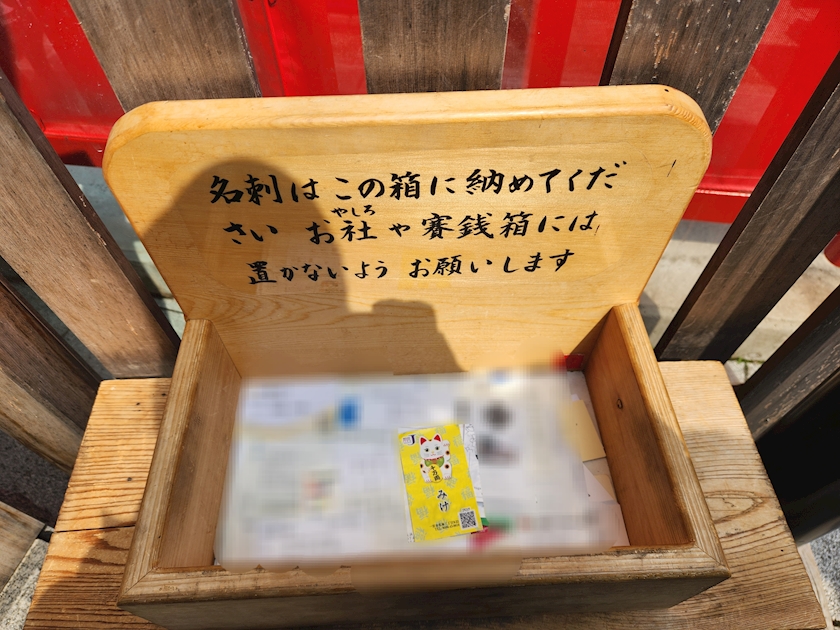 名刺はこの箱に納めてくだ
さい お社や賽銭箱には
やしろ
置かないよう お願いします
みけ